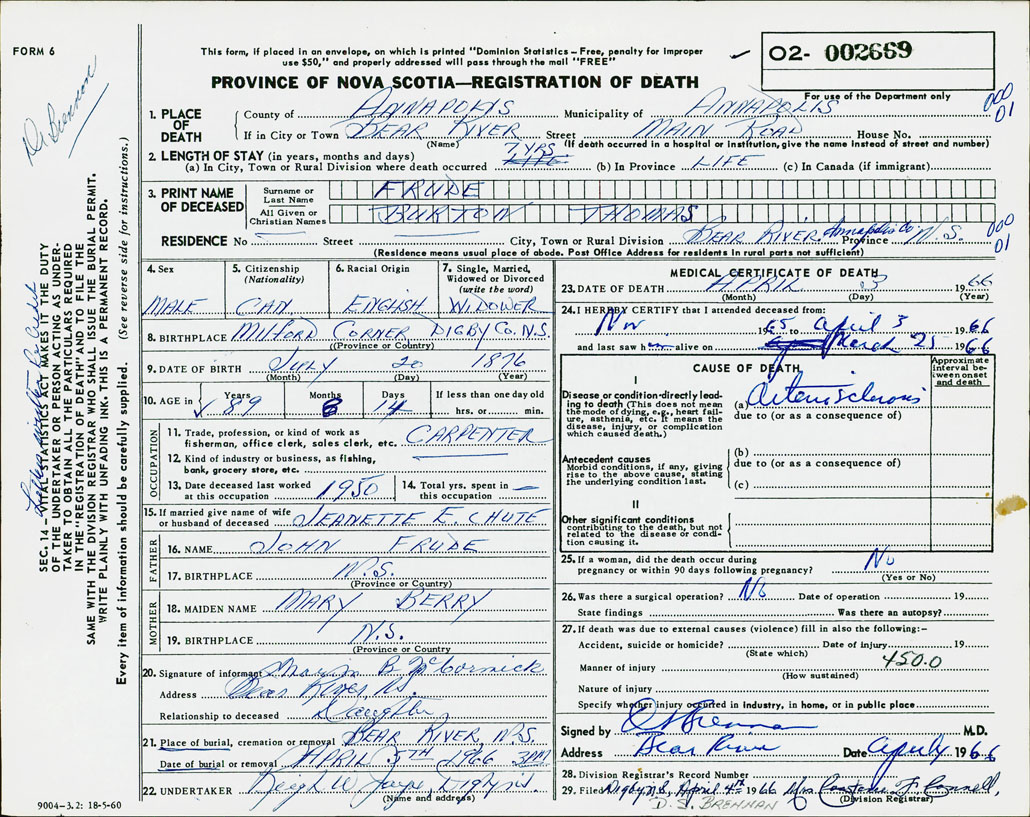 FORM 6
This form, if placed in an envelope, on which is printed "Dominion Statistics – Free, penalty for improper
use $50," and properly addressed will pass through the mail "FREE"
PROVINCE OF NOVA SCOTIA—REGISTRATION OF DEATH
02- 002669
For use of the Department only
000
01
D. Brennan
1. PLACE OF DEATH
County of ANNAPOLIS Municipality of ANNAPOLIS
If in City or Town BEAR RIVER Street MAIN ROAD House No.
(Name) (If death occurred in a hospital or institution, give the name instead of street and number)
2. LENGTH OF STAY (in years, months and days) 7 YRS
(a) In City, Town or Rural Division where death occurred LIFE (b) In Province LIFE (c) In Canada (if immigrant)
3. PRINT NAME OF DECEASED
Surname or Last Name FRUDE
All Given or Christian Names BURTON THOMAS
RESIDENCE No — Street — City, Town or Rural Division BEAR RIVER, Annapolis Co Province N.S.
000
01
(Residence means usual place of abode. Post Office Address for residents in rural parts not sufficient)
4. Sex
MALE
5. Citizenship
(Nationality)
CAN
6. Racial Origin
ENGLISH
7. Single, Married, Widowed or Divorced
(write the word)
WIDOWER
8. BIRTHPLACE MILFORD CORNER DIGBY Co. N.S.
(Province or Country)
9. DATE OF BIRTH JULY 20 1876
(Month) (Day) (Year)
10. AGE in Years 89 Months 8 Days 14 If less than one day old
hrs. or min.
OCCUPATION
11. Trade, profession, or kind of work as
fisherman, office clerk, sales clerk, etc. CARPENTER
12. Kind of industry or business, as fishing,
bank, grocery store, etc.
13. Date deceased last worked
at this occupation 1950
14. Total yrs. spent in
this occupation —
15. If married give name of wife
or husband of deceased JEANETTE E. CHUTE
FATHER
16. NAME JOHN FRUDE
17. BIRTHPLACE N.S.
(Province or Country)
MOTHER
18. MAIDEN NAME MARY BERRY
19. BIRTHPLACE N.S.
(Province or Country)
20. Signature of informant B McCormick
Address Bear River, N.S.
Relationship to deceased Daughter
21. Place of burial, cremation or removal BEAR RIVER, N.S.
Date of burial or removal APRIL 5TH 1966 3 PM
22. UNDERTAKER W Digby N.S.
(Name and address)
9004–3.2: 18-5-60
MEDICAL CERTIFICATE OF DEATH
23. DATE OF DEATH APRIL 3 1966
(Month) (Day) (Year)
24. I HEREBY CERTIFY that I attended deceased from:
Nov 1965 to April 3 1966
and last saw h alive on March 25 1966
CAUSE OF DEATH
Approximate interval between onset and death
I
Disease or condition directly leading to death (This does not mean the mode of dying, e.g., heart failure, asthenia, etc. It means the disease, injury, or complication which caused death.)
(a) Arteriosclerosis
due to (or as a consequence of)
Antecedent causes
Morbid conditions, if any, giving rise to the above cause, stating the underlying condition last.
(b)
due to (or as a consequence of)
(c)
II
Other significant conditions
contributing to the death, but not related to the disease or condition causing it.
25. If a woman, did the death occur during
pregnancy or within 90 days following pregnancy? No
(Yes or No)
26. Was there a surgical operation? No Date of operation 19
State findings Was there an autopsy?
27. If death was due to external causes (violence) fill in also the following:–
Accident, suicide or homicide? Date of injury 19
(State which)
450.0
Manner of injury
(How sustained)
Nature of injury
Specify whether injury occurred in industry, in home, or in public place
Signed by Brennan M.D.
Address Bear River Date April 4 1966
28. Division Registrar's Record Number
29. Filed Digby N.S. April 4th 1966 Mrs. F. Connell,
(Division Registrar)
D. S. BRENNAN
SEC. 14 – VITAL STATISTICS ACT MAKES IT THE DUTY
OF THE UNDERTAKER OR PERSON ACTING AS UNDER-
TAKER TO OBTAIN ALL THE PARTICULARS REQUIRED
IN THE "REGISTRATION OF DEATH" AND TO FILE THE
SAME WITH THE DIVISION REGISTRAR WHO SHALL ISSUE THE BURIAL PERMIT.
WRITE PLAINLY WITH UNFADING INK. THIS IS A PERMANENT RECORD.
Every item of information should be carefully supplied. (See reverse side for instructions.)